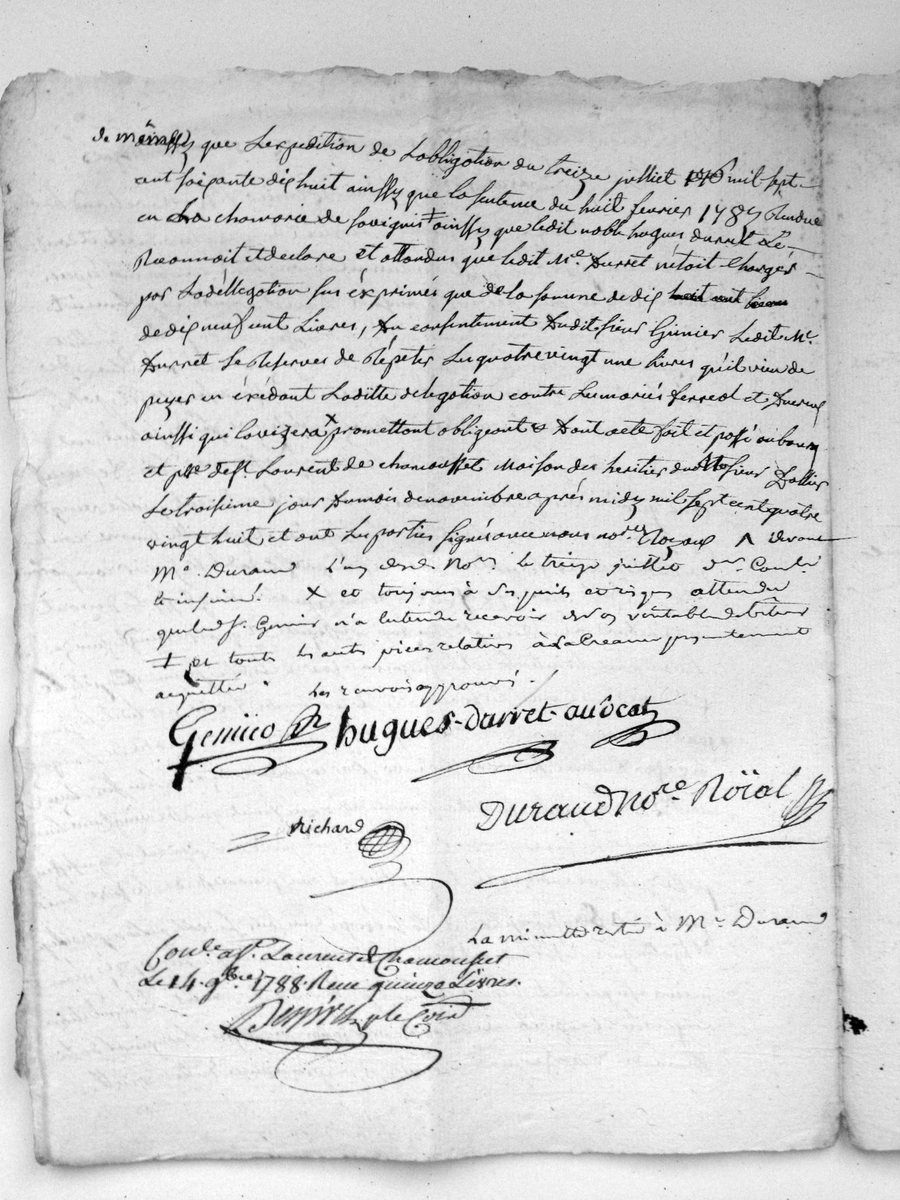 de même que Lexpedition de Lobligation du treize julliet mil sept
cent soixante dix huit ainssy que la sentence du huit fevrier 1785 Rendue
en La chamarie de savignis ‡ ainssy que ledit noble hugues durret Le
Reconnoit et declare et attendu que ledit Me. Durret n'etoit Chargés
par La déllegation sus éxprimés que de la somme de dix huit cent livres
de dix neuf cent Livres, Du consentement Dudit sieur Ledit Me.
Durret Se Reserves de Répeter Les quatre vingt une livres qu'il vien de
payer en éxédant Laditte delegation contre Les mariés ferreol et
ainssi qu'il avizera X promettant obligeant & Dont acte fait et passé au bourg
et psse de St. Laurent de chamousset Maison des heritiers du sieur
Le troisieme jour Du mois de novembre après midy mil sept cent quatre
vingt huit et ont Les parties signés avec nous nores Royaux Λ devant
Me. Durand L'un desd. Nores le treize juillet
et insinué. X et toujours à ses perils et risques attendu
que led. Sr. n'a entendu recevoir de véritable debiteur
‡ et toutes les autres pièces relatives à La Creance presentement
acquittée. Les renvois approuvés.
hugues-durret-avocat
Durand Nore. Roïal
Richard
La minutte restée à Me. Durand
Conlé a St. Laurent de Chamousset
Le 14. 9bre 1788. Reçu quinze Livres.